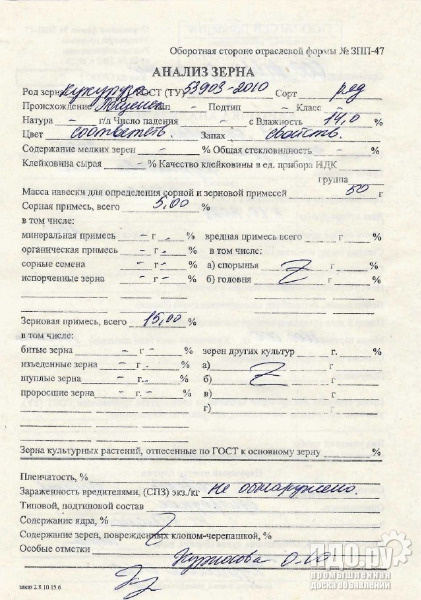 Оборотная стороне отраслевой формы № ЗПП-47
АНАЛИЗ ЗЕРНА
Род зерна кукуруза ГОСТ (ТУ) 53903-2010 Сорт ряд
Происхождение Тип – Подтип – Класс –
Натура – г/л Число падения – с Влажность 14,0 %
Цвет соответств. Запах свойств.
Содержание мелких зерен – % Общая стекловидность – %
Клейковина сырая – % Качество клейковины в ед. прибора ИДК
группа
Масса навески для определения сорной и зерновой примесей 50 г
Сорная примесь, всего 5,00 %
в том числе:
минеральная примесь – г – % вредная примесь всего г %
органическая примесь – г – % в том числе:
сорные семена – г – % а) спорынья г %
испорченные зерна – г – % б) головня г %
г % г %
г % г %
Зерновая примесь, всего 15,00 %
в том числе:
битые зерна – г – % зерен других культур г. %
изъеденные зерна – г – % а) г %
щуплые зерна – г – % б) г %
проросшие зерна – г – % в) г
г) г
Зерна культурных растений, отнесенные по ГОСТ к основному зерну %
Пленчатость, %
Зараженность вредителями, (СПЗ) экз./кг не обнаружено.
Типовой, подтиповой состав
Содержание ядра, %
Содержание зерен, поврежденных клопом-черепашкой, %
Особые отметки
ИДО.ру
ПРОМЫШЛЕННАЯ
ДОСКА ОБЪЯВЛЕНИЙ